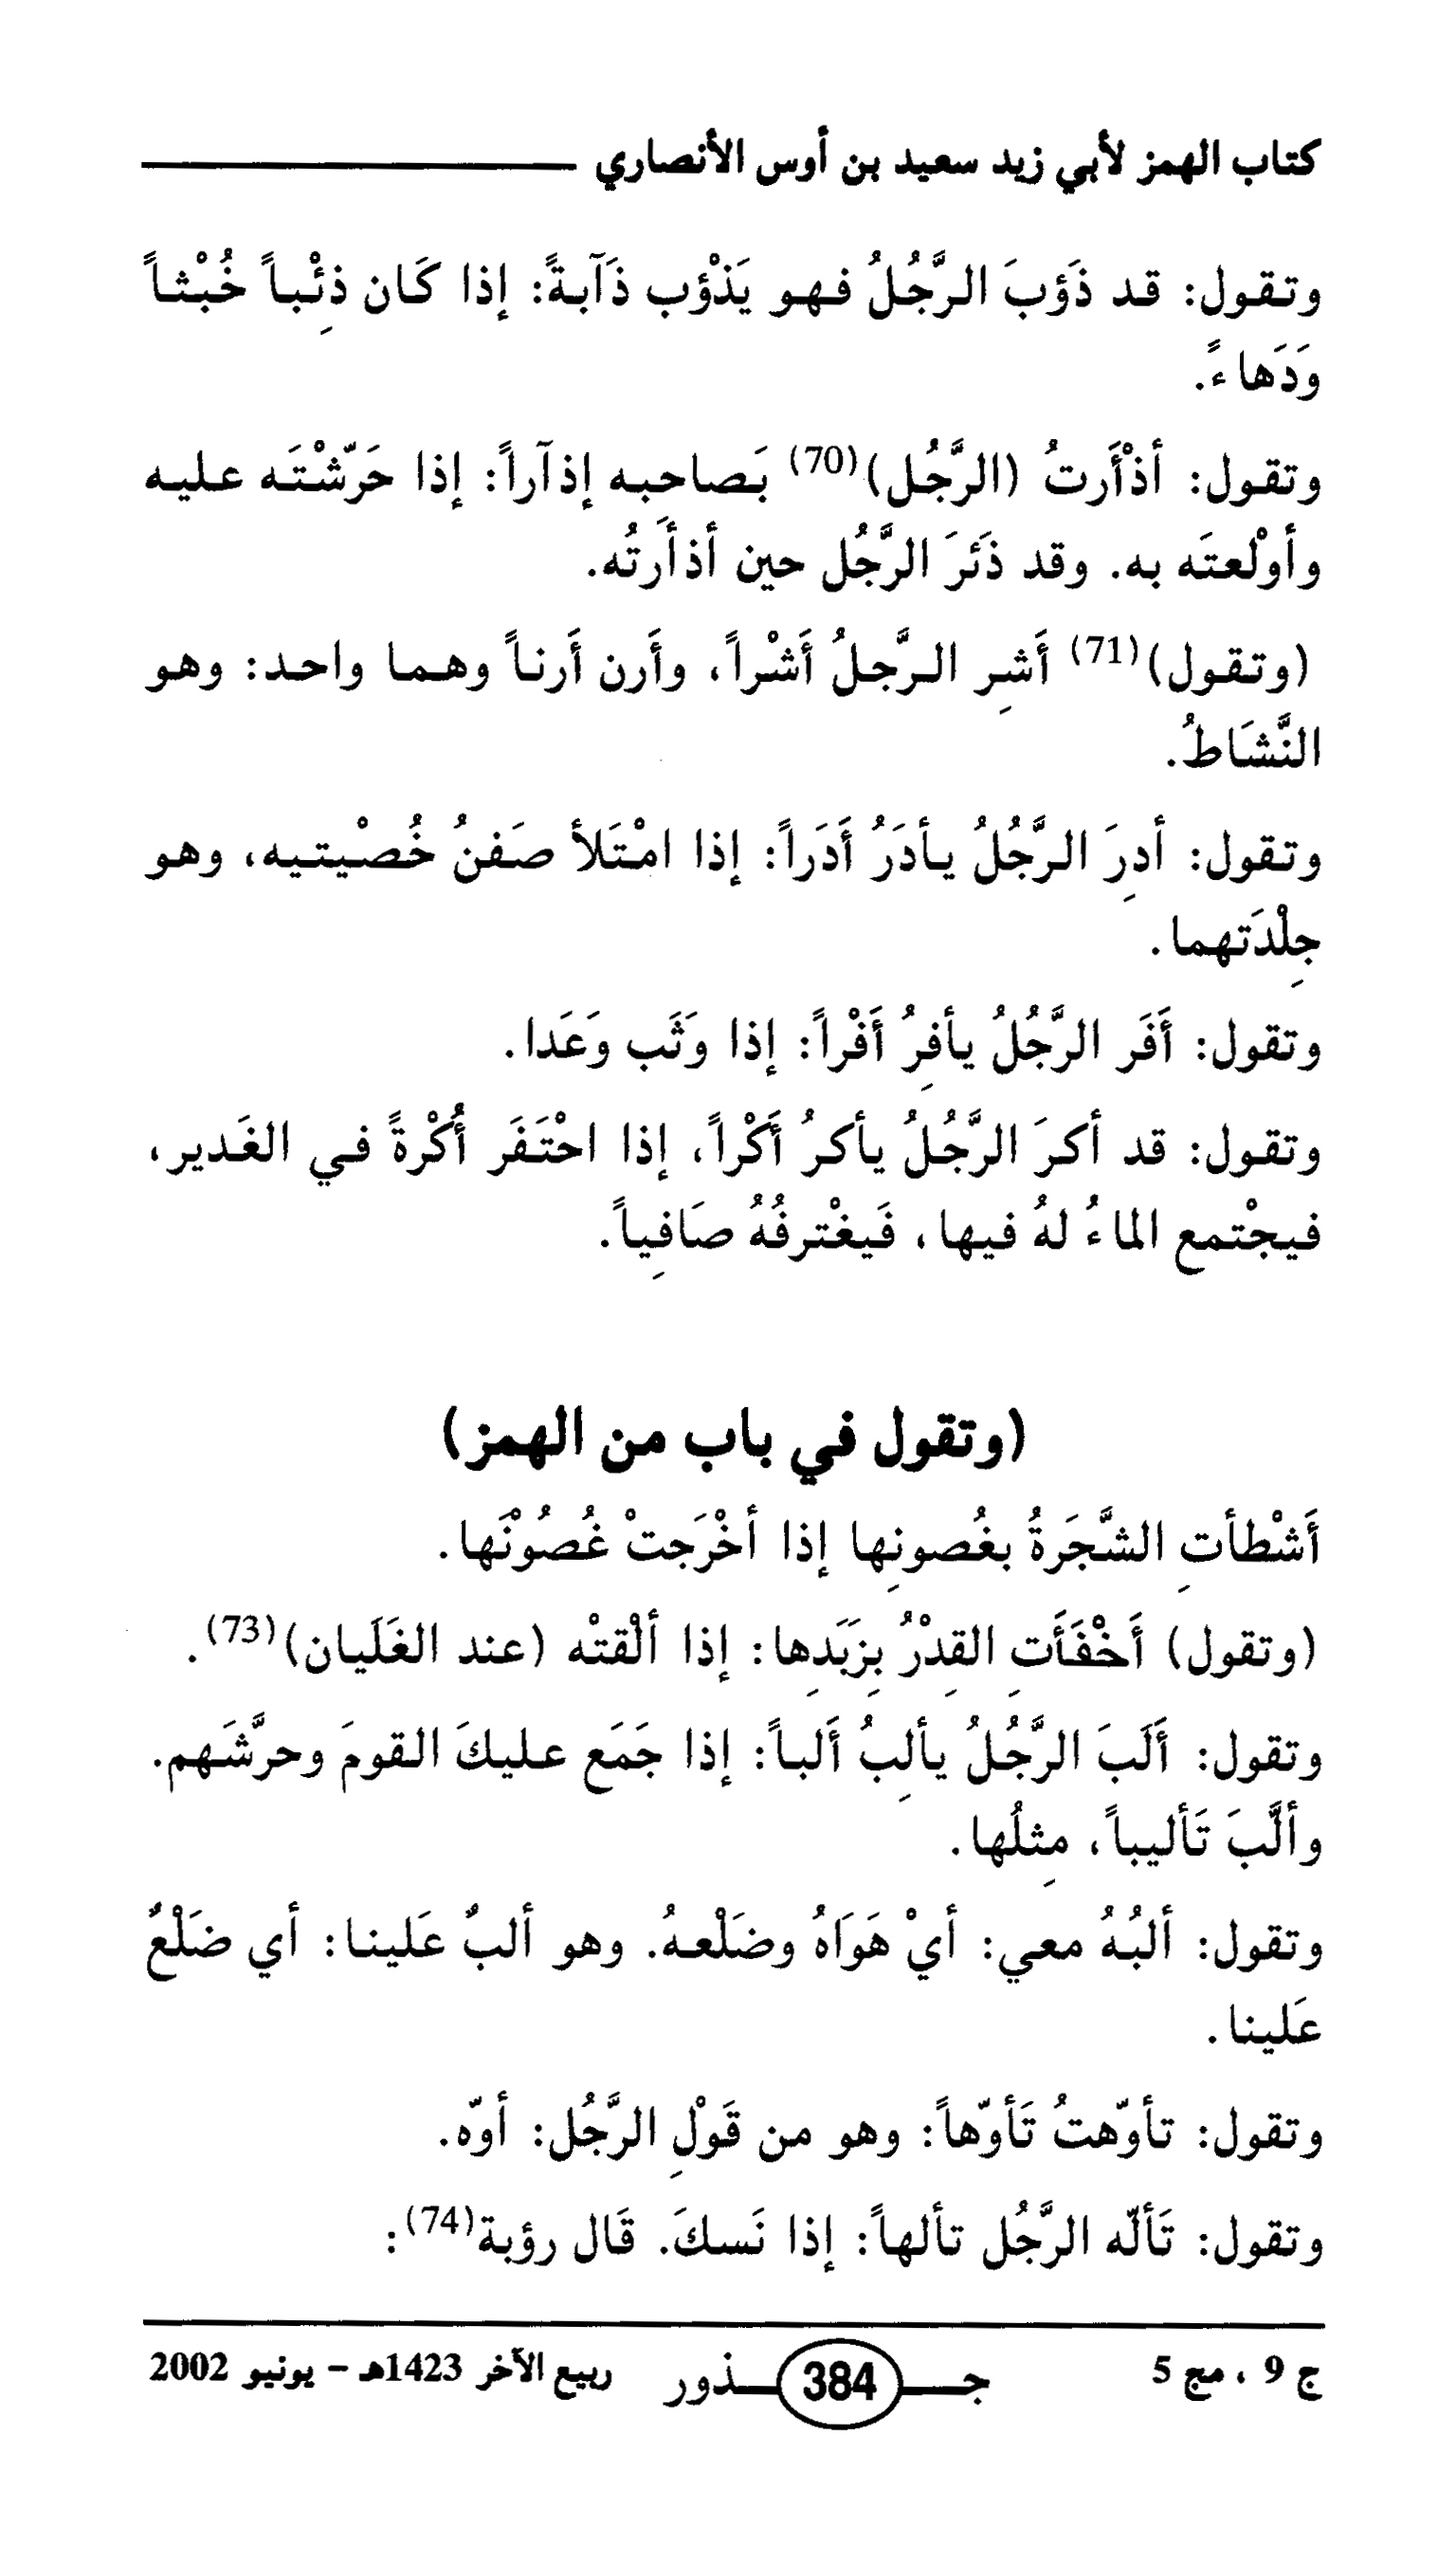 كتاب الهمز لأبي زيد سعيد بن أوس الأنصاري
وتقول: قد ذَؤبَ الرَّجُلُ فهو يَذْؤب ذَآبةً: إذا كَان ذِئْباً خُبْثاً
وَدَهاءً.
وتقول: أذْأَرتُ (الرَّجُل)(70) بَصاحبه إذآراً: إذا حَرّشْتَه عليه
وأوْلعتَه به. وقد ذَئرَ الرَّجُل حين أذأَرتُه.
(وتقول)(71) أَشِر الرَّجلُ أَشْراً، وأَرن أَرناً وهما واحد: وهو
النَّشَاطُ.
وتقول: أدِرَ الرَّجُلُ يأدَرُ أَدَراً: إذا امْتَلأ صَفنُ خُصْيتيه، وهو
جِلْدَتهما.
وتقول: أَفَر الرَّجُلُ يأفِرُ أَفْراً: إذا وَثَب وَعَدا.
وتقول: قد أكرَ الرَّجُلُ يأكرُ أَكْراً، إذا احْتَفَر أُكْرةً في الغَدير،
فيجْتمع الماءُ لهُ فيها، فَيغْترفُهُ صَافِياً.
(وتقول في باب من الهمز)
أَشْطأتِ الشَّجَرةُ بغُصونِها إذا أخْرَجتْ غُصُوْنَها.
(وتقول) أَخْفَأَتِ القِدْرُ بِزَبَدِها: إذا ألْقتْه (عند الغَلَيان)(73).
وتقول: أَلَبَ الرَّجُلُ يألِبُ أَلباً: إذا جَمَع عليكَ القومَ وحرَّشَهم.
وألَّبَ تَأليباً، مِثلُها.
وتقول: ألبُهُ معي: أيْ هَوَاَهُ وضَلْعهُ. وهو ألبٌ عَلينا: أي ضَلْعٌ
عَلينا.
وتقول: تأوّهتُ تَأوّهاً: وهو من قَوْلِ الرَّجُل: أوّه.
وتقول: تَألّه الرَّجُل تألهاً: إذا نَسكَ. قَال رؤبة(74):
ج 9 ، مج 5 جـــذور 384 ربيع الآخر 1423هـ - يونيو 2002